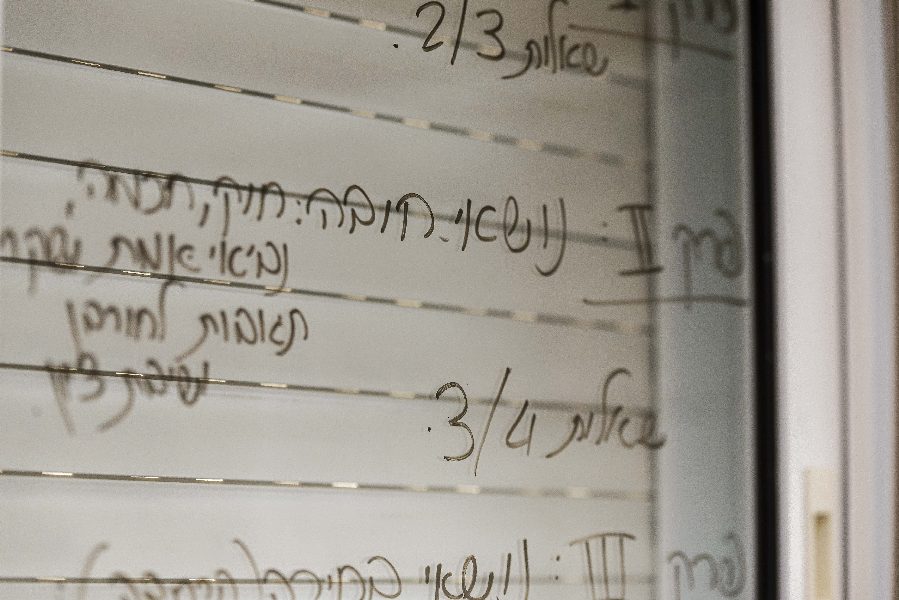 פרק I
שאלות 2/3.
פרק II: נושאי חובה: חוק, חכמה,
נביאי אמת ושקר
תגובות לחורבן
שיבת ציון
שאלות 3/4.
פרק III: נושאי בחירה (הרחבה)